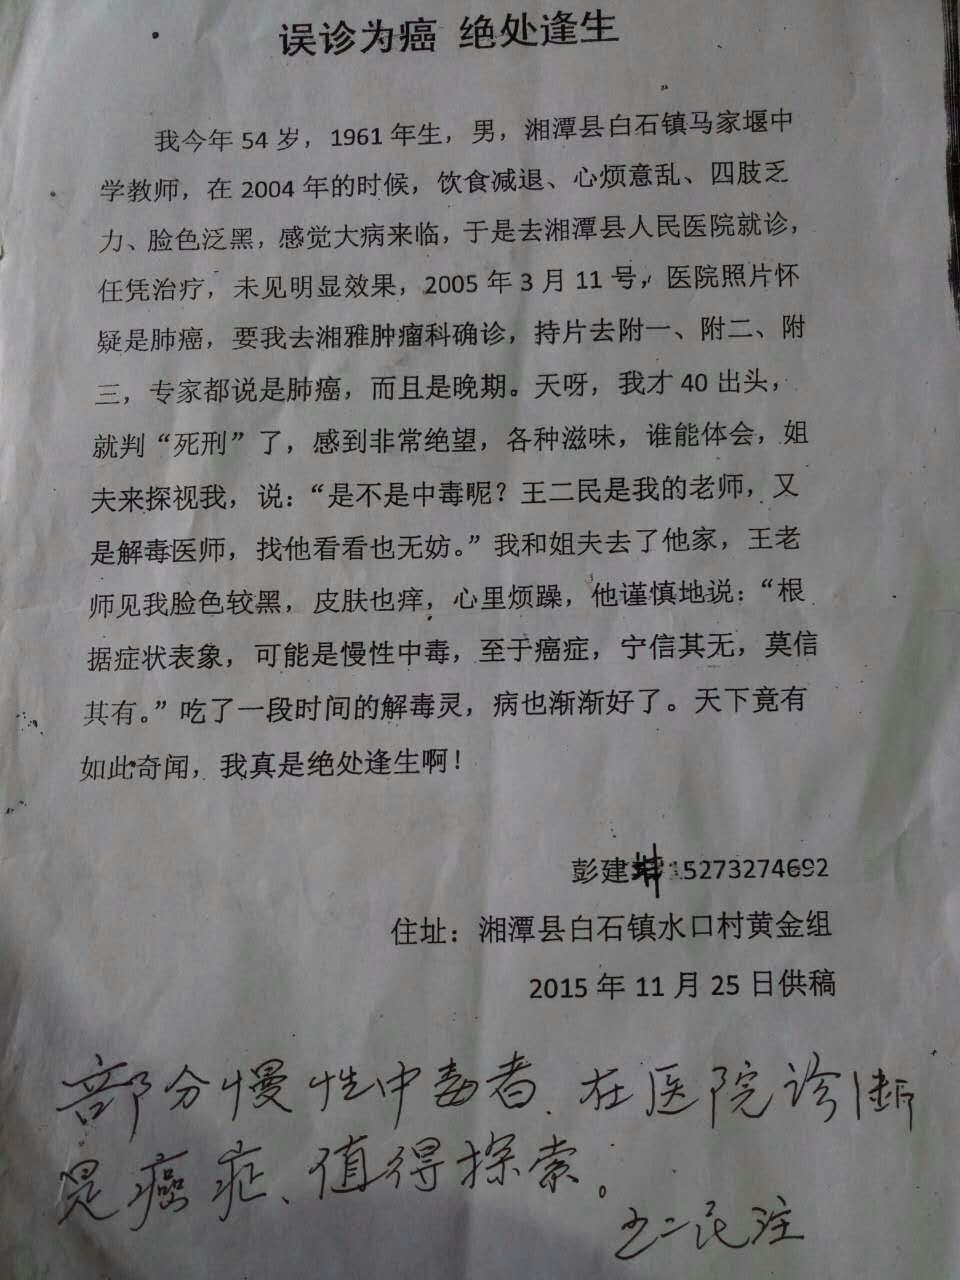 误诊为癌 绝处逢生
我今年 54 岁，1961 年生，男，湘潭县白石镇马家堰中
学教师，在 2004 年的时候，饮食减退、心烦意乱、四肢乏
力、脸色泛黑，感觉大病来临，于是去湘潭县人民医院就诊，
任凭治疗，未见明显效果，2005 年 3 月 11 号，医院照片怀
疑是肺癌，要我去湘雅肿瘤科确诊，持片去附一、附二、附
三，专家都说是肺癌，而且是晚期。天呀，我才 40 出头，
就判“死刑”了，感到非常绝望，各种滋味，谁能体会，姐
夫来探视我，说：“是不是中毒呢？王二民是我的老师，又
是解毒医师，找他看看也无妨。”我和姐夫去了他家，王老
师见我脸色较黑，皮肤也痒，心里烦躁，他谨慎地说：“根
据症状表象，可能是慢性中毒，至于癌症，宁信其无，莫信
其有。”吃了一段时间的解毒灵，病也渐渐好了。天下竟有
如此奇闻，我真是绝处逢生啊！
彭建 15273274692
住址：湘潭县白石镇水口村黄金组
2015 年 11 月 25 日供稿
部分慢性中毒者、在医院诊断
是癌症、值得探索。
王二民注